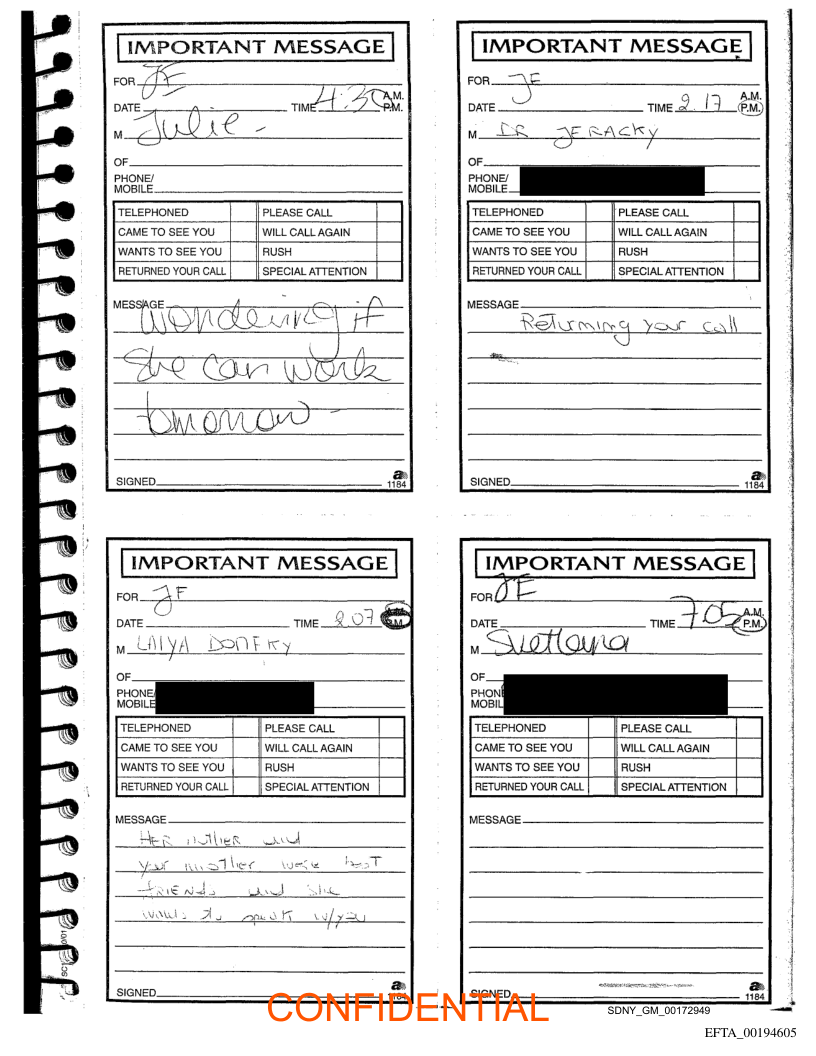 IMPORTANT MESSAGE
FOR JE
DATE TIME 4:30 A.M. P.M.
M Julie -
OF
PHONE/
MOBILE
TELEPHONED PLEASE CALL
CAME TO SEE YOU WILL CALL AGAIN
WANTS TO SEE YOU RUSH
RETURNED YOUR CALL SPECIAL ATTENTION
MESSAGE wondering if
She can work
tomorrow -
SIGNED
a
1184
IMPORTANT MESSAGE
FOR JE
DATE TIME 2 17 A.M. P.M.
M DR JERACKY
OF
PHONE/
MOBILE
TELEPHONED PLEASE CALL
CAME TO SEE YOU WILL CALL AGAIN
WANTS TO SEE YOU RUSH
RETURNED YOUR CALL SPECIAL ATTENTION
MESSAGE
Returning your call
SIGNED
a
1184
IMPORTANT MESSAGE
FOR JE
DATE TIME 2 07 P.M.
M
OF
PHONE/
MOBILE
TELEPHONED PLEASE CALL
CAME TO SEE YOU WILL CALL AGAIN
WANTS TO SEE YOU RUSH
RETURNED YOUR CALL SPECIAL ATTENTION
MESSAGE
HER mother and
your mother were best
FRIENds and she
wants to speak w/you
SIGNED
a
1184
IMPORTANT MESSAGE
FOR JE
DATE TIME 7:05 A.M. P.M.
M Svetlana
OF
PHON
MOBIL
TELEPHONED PLEASE CALL
CAME TO SEE YOU WILL CALL AGAIN
WANTS TO SEE YOU RUSH
RETURNED YOUR CALL SPECIAL ATTENTION
MESSAGE
SIGNED
a
1184
CONFIDENTIAL
SDNY_GM_00172949
EFTA_00194605